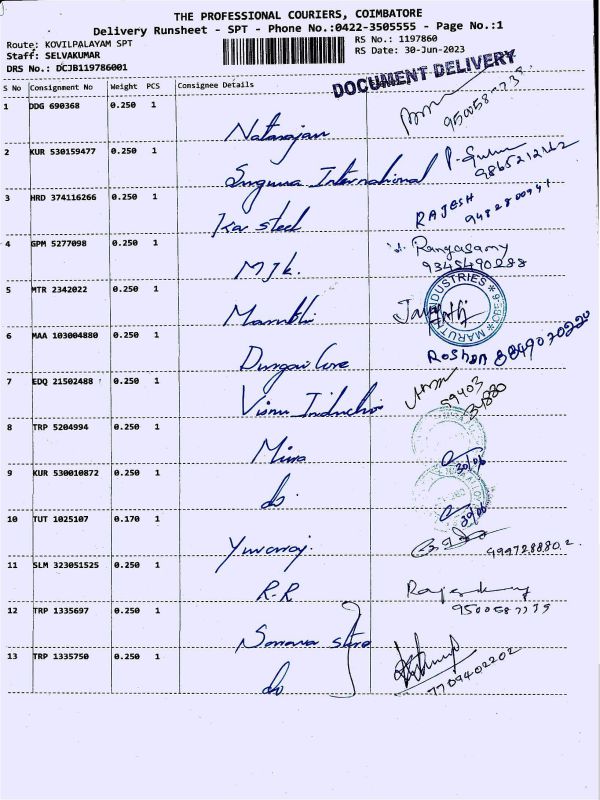 THE PROFESSIONAL COURIERS, COIMBATORE
Delivery Runsheet - SPT - Phone No.:0422-3505555 - Page No.:1
Route: KOVILPALAYAM SPT
RS No.: 1197860
Staff: SELVAKUMAR
RS Date: 30-Jun-2023
DRS No.: DCJB119786001
DOCUMENT DELIVERY
S No Consignment No Weight PCS Consignee Details
1 DDG 690368 0.250 1
Natarajan
2 KUR 530159477 0.250 1
Suguna International
9865212162
3 HRD 374116266 0.250 1
Kav steel
RAJESH
4 GPM 5277098 0.250 1
Rangasamy
9345490288
5 MTR 2342022 0.250 1
INDUSTRIES
MARUTHI
6 MAA 103004880 0.250 1
Roshan 8849070220
7 EDQ 21502488 0.250 1
59403
34880
8 TRP 5204994 0.250 1
30/06
9 KUR 530010872 0.250 1
do
30/06
10 TUT 1025107 0.170 1
Yuvaraj.
9994728880.2
11 SLM 323051525 0.250 1
R.R
12 TRP 1335697 0.250 1
13 TRP 1335750 0.250 1
do
7709402202